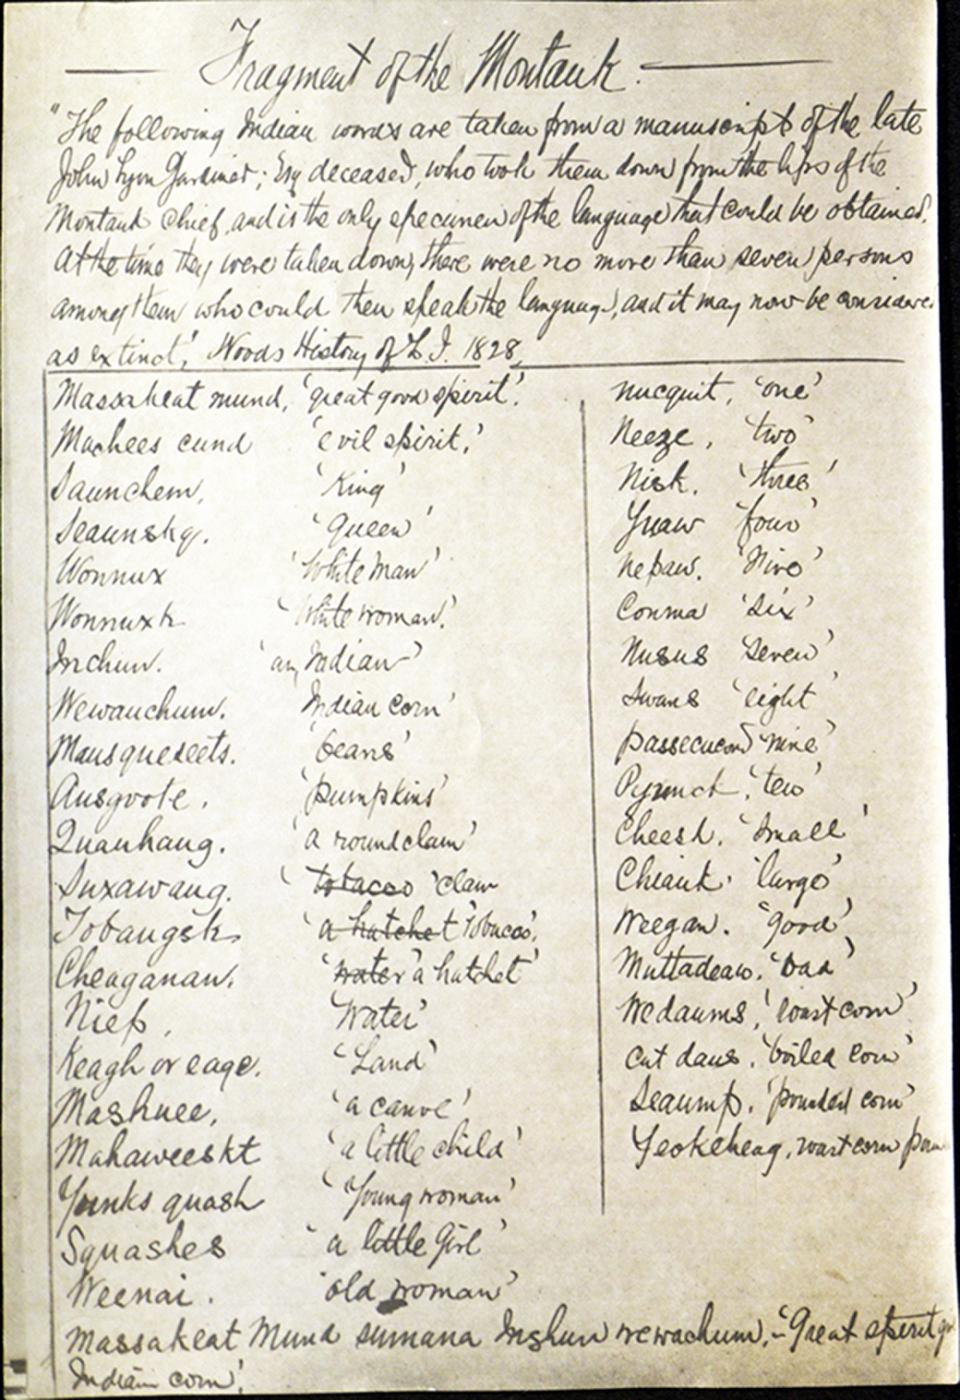 Fragment of the Montauk.
"The following Indian words are taken from a manuscript of the late
John Lyon Gardiner; Esq deceased, who took them down from the lips of the
Montauk chief, and is the only specimen of the language that could be obtained.
At the time they were taken down, there were no more than seven persons
among them who could then speak the language, and it may now be considered
as extinct.' Woods History of L.I. 1828,
Massakeat mund, 'great good spirit'.
Machees cund 'evil spirit.'
Saunchem, 'King'
Seaunskq. 'Queen'
Wonnux 'White man'
Wonnuxk 'White woman.'
Inchun. 'an Indian'
Wewauchum. Indian corn'
Mausqueseets. 'beans'
Ausgoote. 'pumpkins'
Quauhaug. 'a round clam'
Suxawaug. 'tobacco 'clam
Tobaugsk 'a hatchet 'Tobacco'.
Cheaganan. 'water 'a hatchet'
Niep, 'Water'
Keagh or eage. 'Land'
Mashuee, 'a canoe'
Mahaweeskt 'a little child'
Yunks quash 'Young woman'
Squashes 'a little Girl'
Weenai. 'old woman'
nucquit, 'one'
Neeze, 'two'
Nisk. 'three'
Yuaw 'four'
Nepaw. 'Five'
Conma 'six'
Nusus 'seven'
Swans 'eight'
passecucond 'nine'
Pyunck, 'ten'
Cheesk. 'small'
Chiauk. 'large'
Weegan. 'good'
Muttadeaw. 'bad'
Wedaums, 'roast corn'
Cut daus. 'boiled corn'
Seaump. 'pounded corn'
Yeokeheag, roast corn
Massakeat Mund sumana Inshun wewachum.-'Great spirit
Indian corn'.